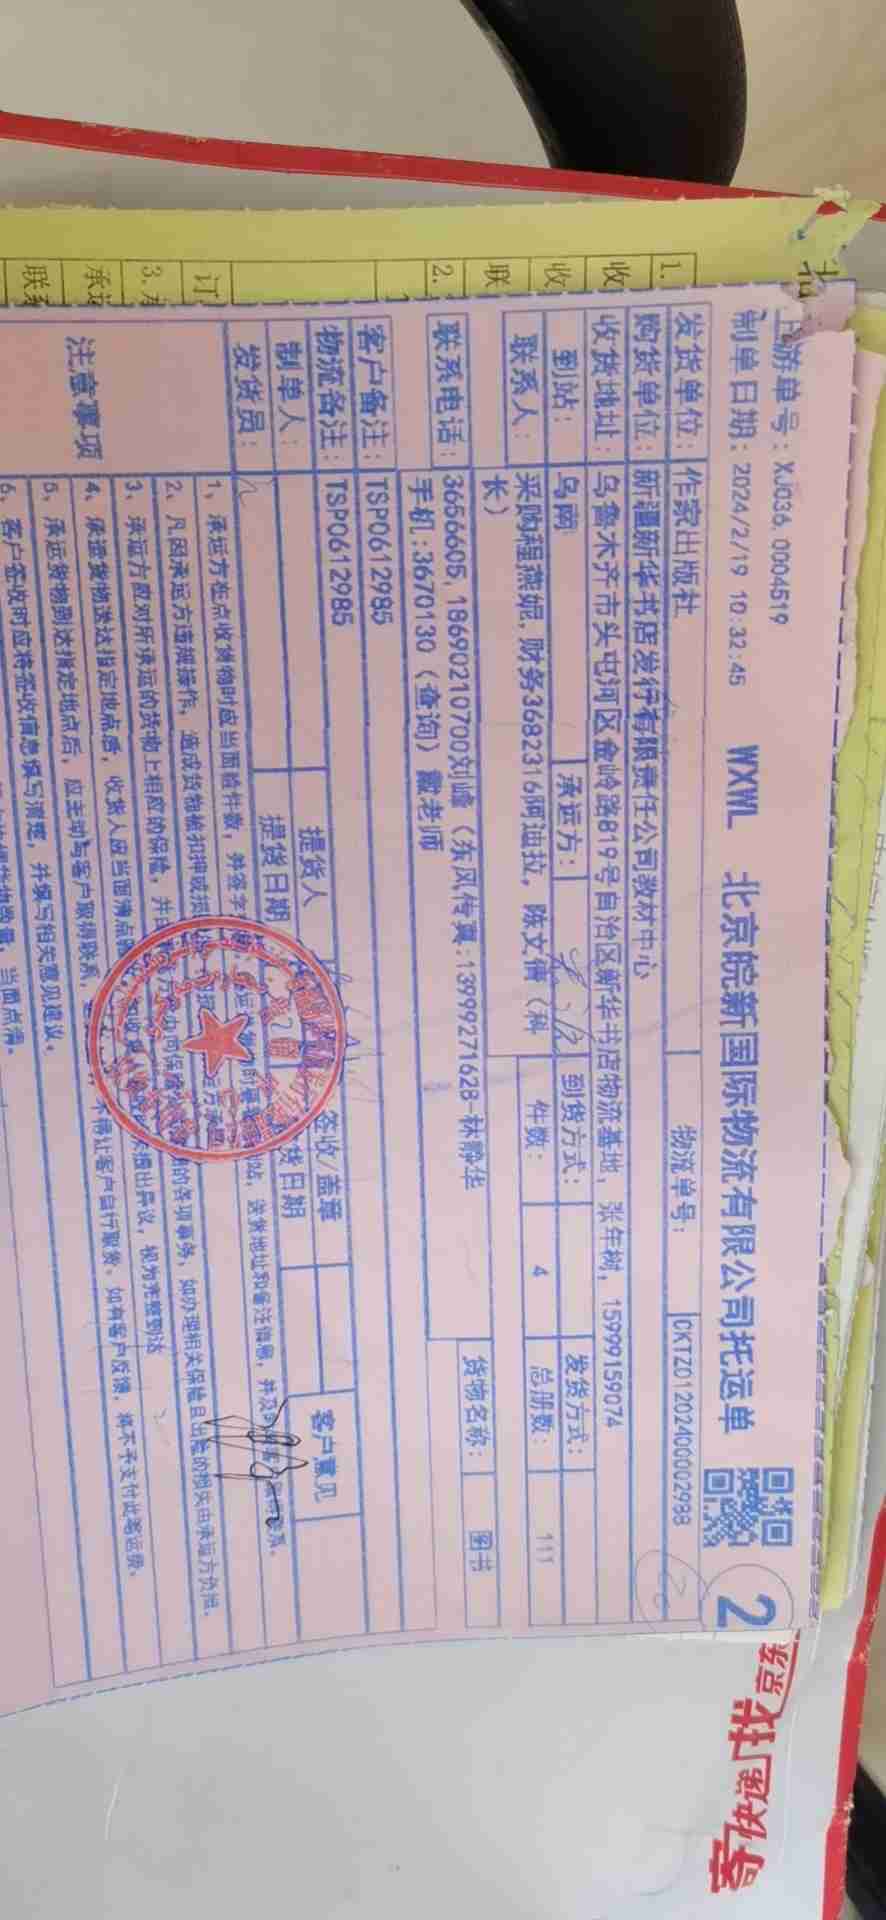 上游单号：XJ036, 0004519
制单日期：2024/2/19 10:32:45
WXWL 北京皖新国际物流有限公司托运单
2
发货单位：作家出版社
物流单号：CKTZ01202400002988
购货单位：新疆新华书店发行有限责任公司教材中心
收货地址：乌鲁木齐市头屯河区金岭路819号自治区新华书店物流基地，张年树，15999159074
到站：乌南 承运方： 到货方式： 发货方式：
联系人：采购程燕妮,财务3682316阿迪拉，陈文倩（科长）
件数：4 总册数：111
联系电话：3656605,18690210700刘峰（东风传真:13999271628-林静华
手机:3670130（查询）戴老师
货物名称：图书
客户备注：TSP0612985
物流备注：TSP0612985
制单人： 提货人 签收/盖章 客户意见
发货员： 提货日期 货日期
注意事项
1、承运方在点收货物时应当面验件数，并签字 站，送货地址和备注信息，并及时 联系。
2、凡因承运方违规操作，造成货物被扣押或损
3、承运方应对所承运的货物上相应的保险，并 的各项事务，如办理相关保险且出险的损失由承运方负担。
4、承运货物送达指定地点后，收货人应当面清点 提出异议，视为完整到达
5、承运货物到达指定地点后，应主动与客户取得联系， 不得让客户自行取货。如有客户反馈，将不予支付此笔运费。
6、客户签收时应将签收信息填写清楚，并填写相关意见建议。
当面点清。
1.
收
收
联
2.
订
3.
承
联系
寄快递 找京东